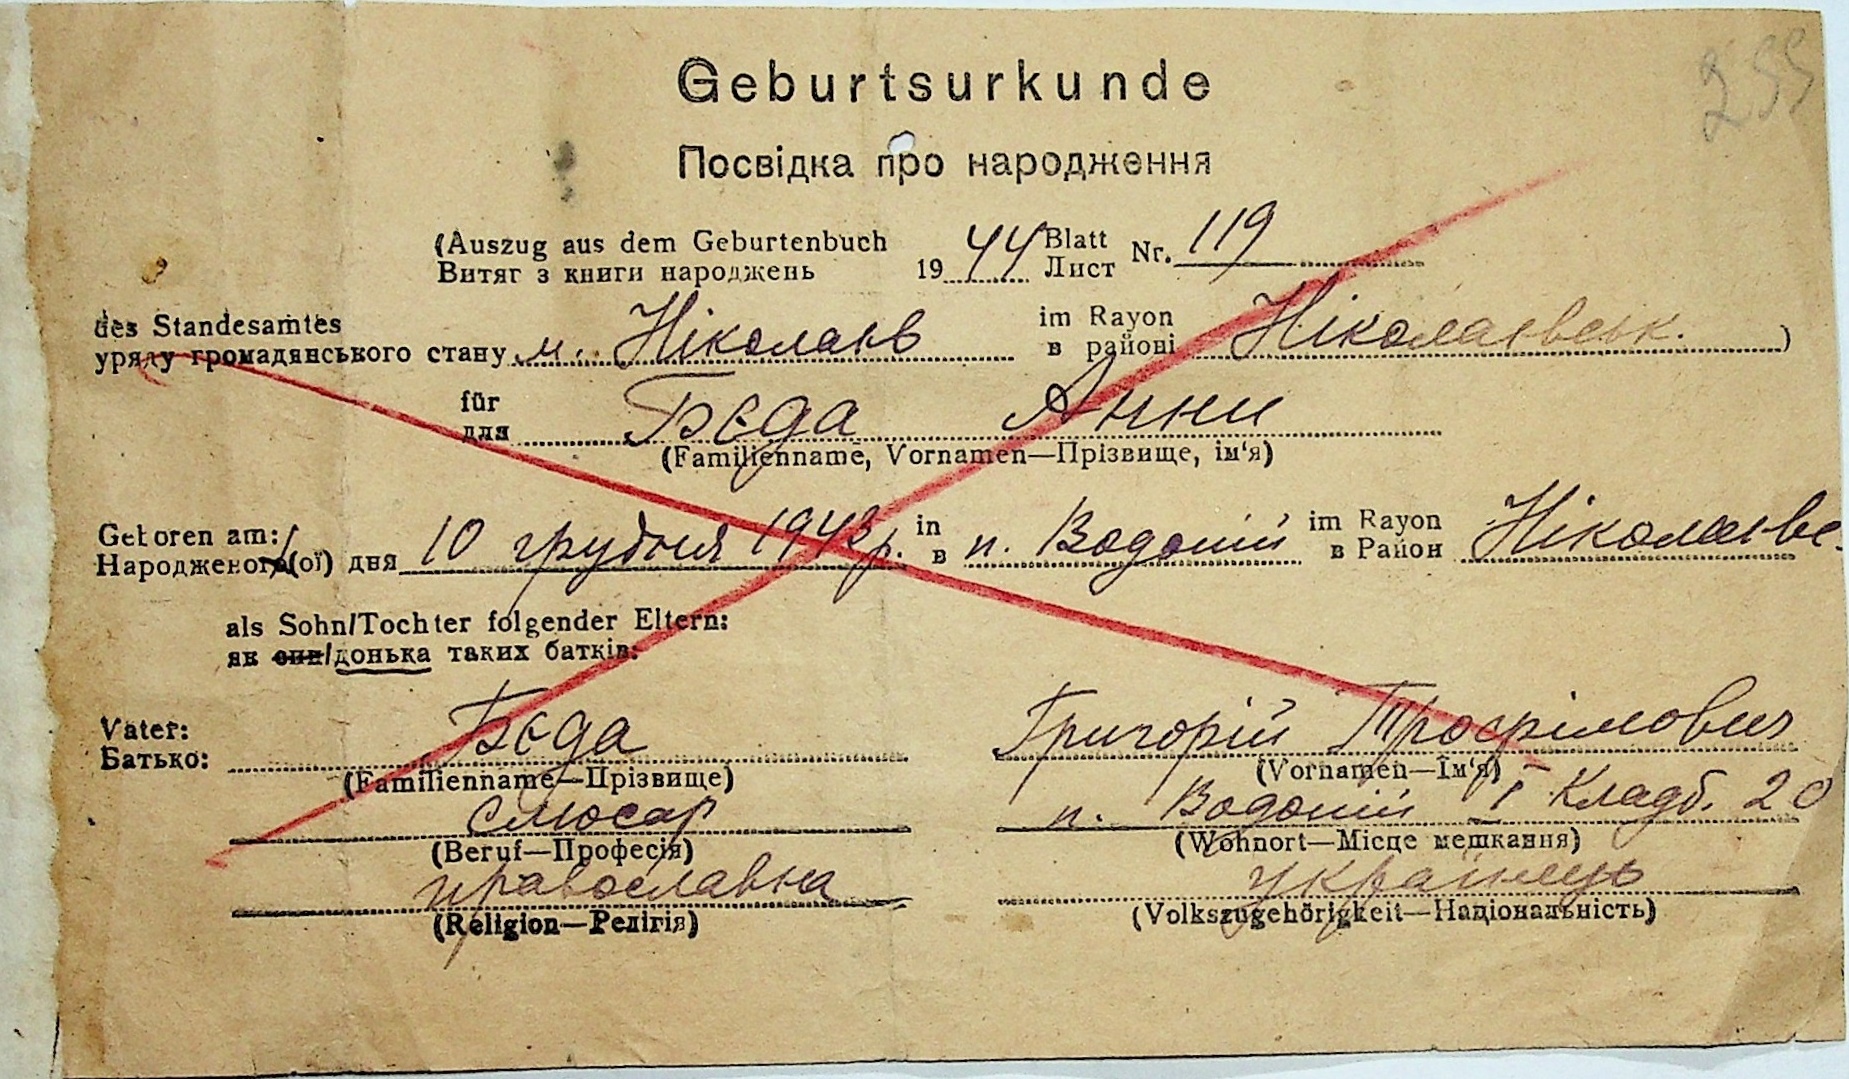 255
Geburtsurkunde
Посвідка про народження
(Auszug aus dem Geburtenbuch 1944 Blatt Nr. 119
Витяг з книги народжень Лист
des Standesamtes im Rayon
уряду громадянського стану м. Ніколаєв в районі Ніколаєвськ. )
für
для Бєда Анни
(Familienname, Vornamen—Прізвище, ім'я)
Geboren am: in im Rayon
Народженого/(ої) дня 10 грудня 1943 р. в п. Водопій в Район Ніколаєвс.
als Sohn/Tochter folgender Eltern:
як син/донька таких батків:
Vater: Бєда Григорій Трофімович
Батько:
(Familienname—Прізвище) (Vornamen—Ім'я)
слюсар п. Водопій I Кладб. 20
(Beruf—Професія) (Wohnort—Місце мешкання)
православна українець
(Religion—Релігія) (Volkszugehörigkeit—Національність)